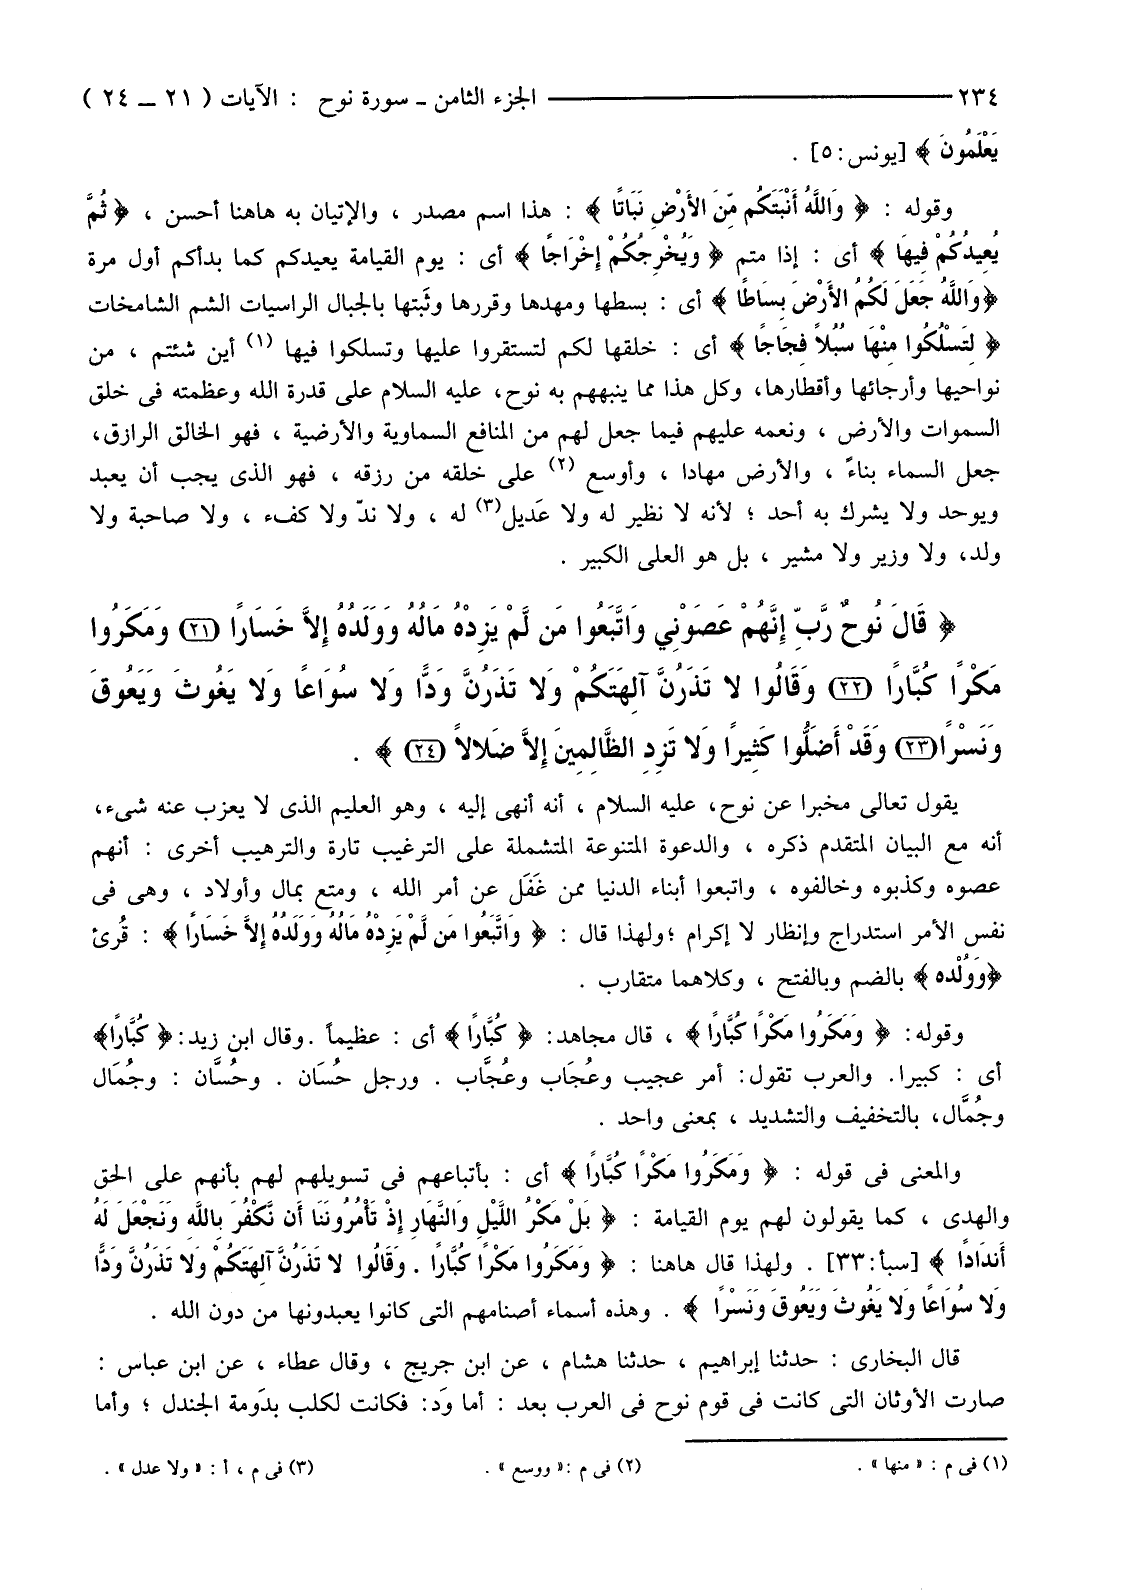 ٢٣٤ ـــــــــــــ الجزء الثامن ـ سورة نوح : الآيات ( ٢١ ــ ٢٤ )
يَعْلَمُونَ ﴾ [يونس:٥] .
وقوله : ﴿ وَاللَّهُ أَنْبَتَكُم مِّنَ الأَرْضِ نَبَاتًا ﴾ : هذا اسم مصدر ، والإتيان به هاهنا أحسن ، ﴿ ثُمَّ
يُعِيدُكُمْ فِيهَا ﴾ أى : إذا متم ﴿ وَيُخْرِجُكُمْ إِخْرَاجًا ﴾ أى : يوم القيامة يعيدكم كما بدأكم أول مرة
﴿وَاللَّهُ جَعَلَ لَكُمُ الأَرْضَ بِسَاطًا ﴾ أى : بسطها ومهدها وقررها وثَبتها بالجبال الراسيات الشم الشامخات
﴿ لِتَسْلُكُوا مِنْهَا سُبُلاً فِجَاجًا ﴾ أى : خلقها لكم لتستقروا عليها وتسلكوا فيها (١) أين شئتم ، من
نواحيها وأرجائها وأقطارها، وكل هذا مما ينبههم به نوح، عليه السلام على قدرة الله وعظمته فى خلق
السموات والأرض ، ونعمه عليهم فيما جعل لهم من المنافع السماوية والأرضية ، فهو الخالق الرازق،
جعل السماء بناءً ، والأرض مهادا ، وأوسع (٢) على خلقه من رزقه ، فهو الذى يجب أن يعبد
ويوحد ولا يشرك به أحد ؛ لأنه لا نظير له ولا عَديل(٣) له ، ولا ندّ ولا كفء ، ولا صاحبة ولا
ولد، ولا وزير ولا مشير ، بل هو العلى الكبير .
﴿ قَالَ نُوحٌ رَّبِّ إِنَّهُمْ عَصَوْنِي وَاتَّبَعُوا مَن لَّمْ يَزِدْهُ مَالُهُ وَوَلَدُهُ إِلاَّ خَسَارًا (٢١) وَمَكَرُوا
مَكْرًا كُبَّارًا (٢٢) وَقَالُوا لا تَذَرُنَّ آلِهَتَكُمْ وَلا تَذَرُنَّ وَدًّا وَلا سُوَاعًا وَلا يَغُوثَ وَيَعُوقَ
وَنَسْرًا(٢٣) وَقَدْ أَضَلُّوا كَثِيرًا وَلا تَزِدِ الظَّالِمِينَ إِلاَّ ضَلالاً (٢٤) ﴾ .
يقول تعالى مخبرا عن نوح، عليه السلام ، أنه أنهى إليه ، وهو العليم الذى لا يعزب عنه شىء،
أنه مع البيان المتقدم ذكره ، والدعوة المتنوعة المتشملة على الترغيب تارة والترهيب أخرى : أنهم
عصوه وكذبوه وخالفوه ، واتبعوا أبناء الدنيا ممن غَفَل عن أمر الله ، ومتع بمال وأولاد ، وهى فى
نفس الأمر استدراج وإنظار لا إكرام ؛ولهذا قال : ﴿ وَاتَّبَعُوا مَن لَّمْ يَزِدْهُ مَالُهُ وَوَلَدُهُ إِلاَّ خَسَارًا ﴾ : قُرئ
﴿وَوُلْده ﴾ بالضم وبالفتح ، وكلاهما متقارب .
وقوله: ﴿ وَمَكَرُوا مَكْرًا كُبَّارًا ﴾ ، قال مجاهد: ﴿ كُبَّارًا ﴾ أى : عظيماً .وقال ابن زيد:﴿ كُبَّارًا﴾
أى : كبيرا. والعرب تقول: أمر عجيب وعُجَاب وعُجَّاب . ورجل حُسَان . وحُسَّان : وجُمَال
وجُمَّال، بالتخفيف والتشديد ، بمعنى واحد .
والمعنى فى قوله : ﴿ وَمَكَرُوا مَكْرًا كُبَّارًا ﴾ أى : بأتباعهم فى تسويلهم لهم بأنهم على الحق
والهدى ، كما يقولون لهم يوم القيامة : ﴿ بَلْ مَكْرُ اللَّيْلِ وَالنَّهَارِ إِذْ تَأْمُرُونَنَا أَن نَّكْفُرَ بِاللَّهِ وَنَجْعَلَ لَهُ
أَندَادًا ﴾ [سبأ:٣٣] . ولهذا قال هاهنا : ﴿ وَمَكَرُوا مَكْرًا كُبَّارًا . وَقَالُوا لا تَذَرُنَّ آلِهَتَكُمْ وَلا تَذَرُنَّ وَدًّا
وَلا سُوَاعًا وَلا يَغُوثَ وَيَعُوقَ وَنَسْرًا ﴾ . وهذه أسماء أصنامهم التى كانوا يعبدونها من دون الله .
قال البخارى : حدثنا إبراهيم ، حدثنا هشام ، عن ابن جريج ، وقال عطاء ، عن ابن عباس :
صارت الأوثان التى كانت فى قوم نوح فى العرب بعد : أما وَد: فكانت لكلب بدَومة الجندل ؛ وأما
(١) فى م : « منها » . (٢) فى م :« ووسع » . (٣) فى م ، أ : « ولا عدل » .